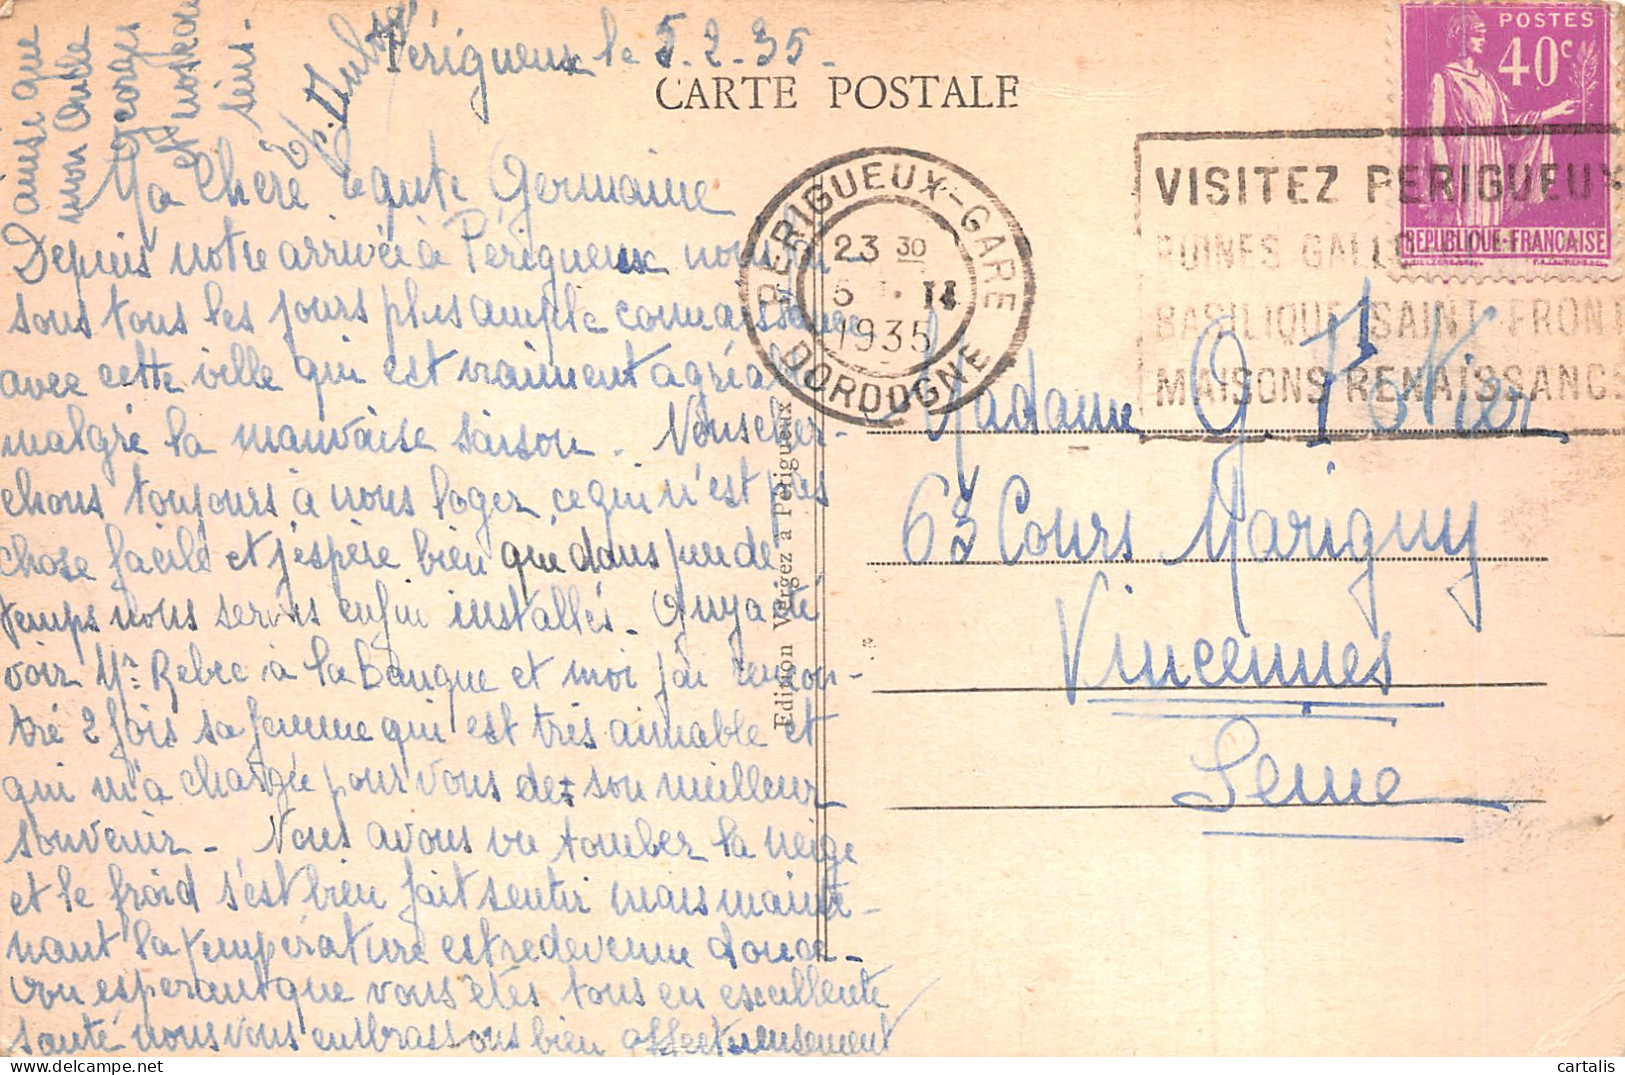 Périgueux le 5.2.35.
CARTE POSTALE
POSTES
40c
REPUBLIQUE-FRANCAISE
PERIGUEUX-GARE
23 30
5 II
1935
DORDOGNE
VISITEZ PERIGUEUX
RUINES GALLO
BASILIQUE SAINT-FRONT
MAISONS RENAISSANCE
Ma Chère petite Germaine
Depuis notre arrivée à Périgueux nous
sous tous les jours plus ample connaissance
avec cette ville qui est vraiment agréa
malgré la mauvaise saison. Nous cher-
chons toujours à nous loger, ce qui n'est pas
chose facile et j'espère bien que dans peu de
temps nous serons enfin installés. Guy a été
voir Mr. Rebec à la Banque et moi j'ai rencon-
tré 2 fois sa femme qui est très aimable et
qui m'a chargée pour vous de son meilleur
souvenir. Nous avons vu tomber la neige
et le froid s'est bien fait sentir mais mainte-
nant la température est redevenue douce.
En espérant que vous êtes tous en excellente
santé nous vous embrassons bien affectueusement
que
mon Oncle
Georges
et
Madame G. Potier
63 Cours Marigny
Vincennes
Seine
Edition Vergez à Périgueux
cartalis